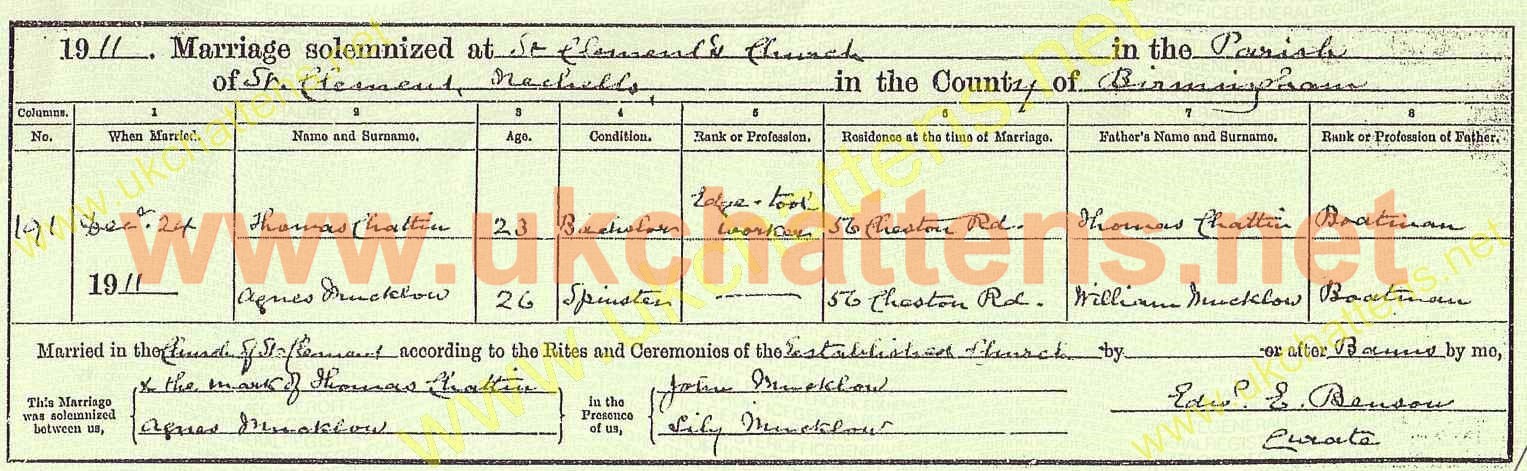 1911. Marriage solemnized at St Clement's Church in the Parish
of St. Clement, Nechells, in the County of Birmingham
Columns. 1 2 3 4 5 6 7 8
No. When Married. Name and Surname. Age. Condition. Rank or Profession. Residence at the time of Marriage. Father's Name and Surname. Rank or Profession of Father.
191 Decr. 24 Thomas Chattin 23 Bachelor Edge-tool worker 56 Cheston Rd. Thomas Chattin Boatman
1911 Agnes Mucklow 26 Spinster — 56 Cheston Rd. William Mucklow Boatman
Married in the Church of St. Clement according to the Rites and Ceremonies of the Established Church by or after Banns by me,
This Marriage was solemnized between us,
x the mark of Thomas Chattin
Agnes Mucklow
in the Presence of us,
John Mucklow
Lily Mucklow
Edwd. E. Benson
Curate
www.ukchattens.net
www.ukchattens.net
www.ukchattens.net
www.ukchattens.net
www.ukchattens.net